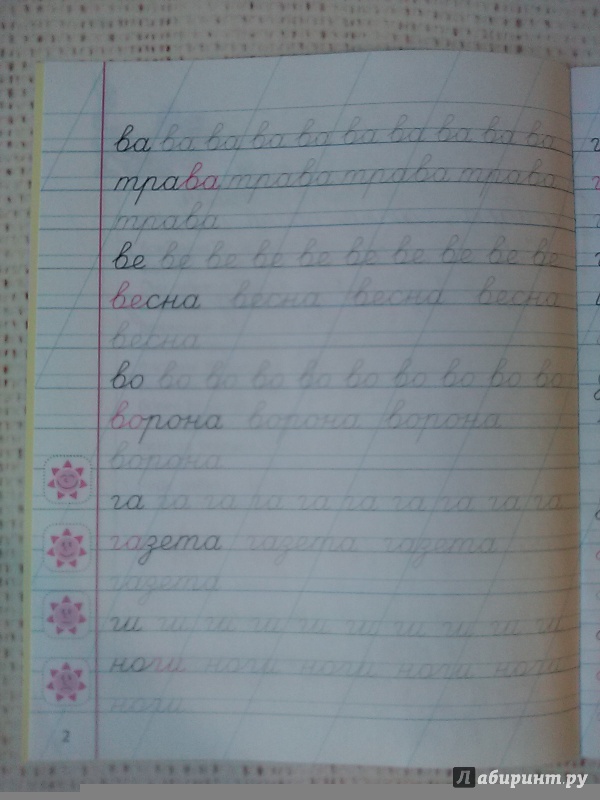 ва ва ва ва ва ва ва ва ва ва
трава трава трава трава
трава
ве ве ве ве ве ве ве ве ве ве
весна весна весна весна
весна
во во во во во во во во во во
ворона ворона ворона
ворона
га га га га га га га га га га
газета газета газета
газета
ги ги ги ги ги ги ги ги ги ги
ноги ноги ноги ноги ноги
ноги
2
Лабиринт.ру